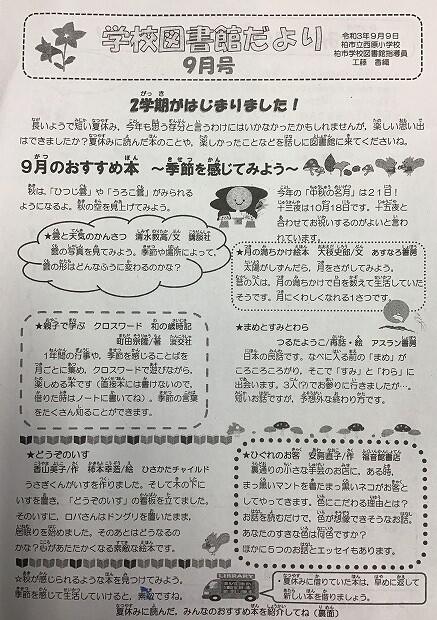 学校図書館だより
9月号
令和3年9月9日
柏市立西原小学校
柏市学校図書館指導員
工藤 香織
2学期がはじまりました！
長いようで短い夏休み，今年も思う存分と言うわけにはいかなかったかもしれませんが，楽しい思い出
はできましたか？夏休みに読んだ本のことや，楽しかったことなどを話しに図書館に来てくださいね。
9月のおすすめ本 ～季節を感じてみよう～
秋は，「ひつじ雲」や「うろこ雲」がみられる
ようになるよ。秋の空を見上げてみよう。
今年の「中秋の名月」は21日！
十三夜は10月18日です。十五夜と
合わせてお祝いするのがよいと言わ
れています。
★雲と天気のかんさつ 清水教高/文 講談社
雲の写真を見てみよう。季節や場所によって，
雲の形はどんなふうに変わるのかな？
★月の満ちかけ絵本 大枝史郎/文 あすなろ書房
太陽がしずんだら，月をさがしてみよう。
昔の人は，月の満ちかけで日を数えて生活していた
そうです。月にくわしくなれる1さつです。
★親子で学ぶ クロスワード 和の歳時記
町田宗隆/著 淡交社
1年間の行事や，季節を感じることばを
月ごとに集め，クロスワードで遊びながら，
楽しめる本です（直接本には書けないので，
借りた時はノートに書いてね）。季節の言葉
をたくさん知ることができます。
★まめとすみとわら
つるたようこ/再話・絵 アスラン書房
日本の民話です。なべに入る前の「まめ」が
ころころころがり，そこで「すみ」と「わら」に
出会います。3人(?)でお参りに行きましたが…。
短いお話ですが，予想外な終わり方です。
★どうぞのいす
香山美子/作 柿本幸造/絵 ひさかたチャイルド
うさぎくんがいすを作りました。そして木の下に
いすを置き，「どうぞのいす」の看板を立てました。
そのいすに，ロバさんはドングリを置いたまま，
居眠りを始めました。そのあとはどうなるの
かな？心があたたかくなる素敵な絵本です。
★ひぐれのお客 安房直子/作 福音館書店
裏通りの小さな手芸のお店に，ある時，
まっ黒いマントを着たまっ黒いネコがお客と
してやってきます。色にこだわる理由とは？
お話を読むだけで，色が想像できそうなお話。
あなたのすきな色は何色ですか？
ほかに5つのお話とエッセイもあります。
☆秋が感じられるような本を見つけてみよう。
季節を感じて生活していけると，素敵ですね。
LIBRARY
夏休みに借りていた本は，早めに返して
新しい本を借りよう。
夏休みに読んだ，みんなのおすすめ本を紹介してね（裏面）